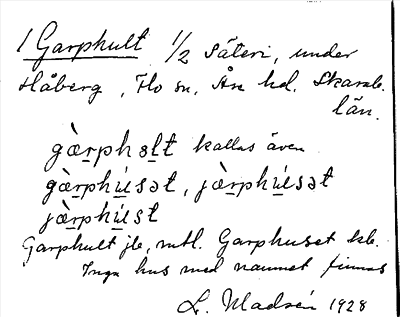 1 Garphult 1/2 Säteri, under
Håberg, Flo sn, Åse hd. Skarab.
län.
gà̀rphəḻt kallas även
gæ̀rphúsət, jæ̀rphúsət
jæ̀rphúst
Garphult jb, mtl. Garphuset kb.
Inga hus med namnet finnas
L. Madsén 1928